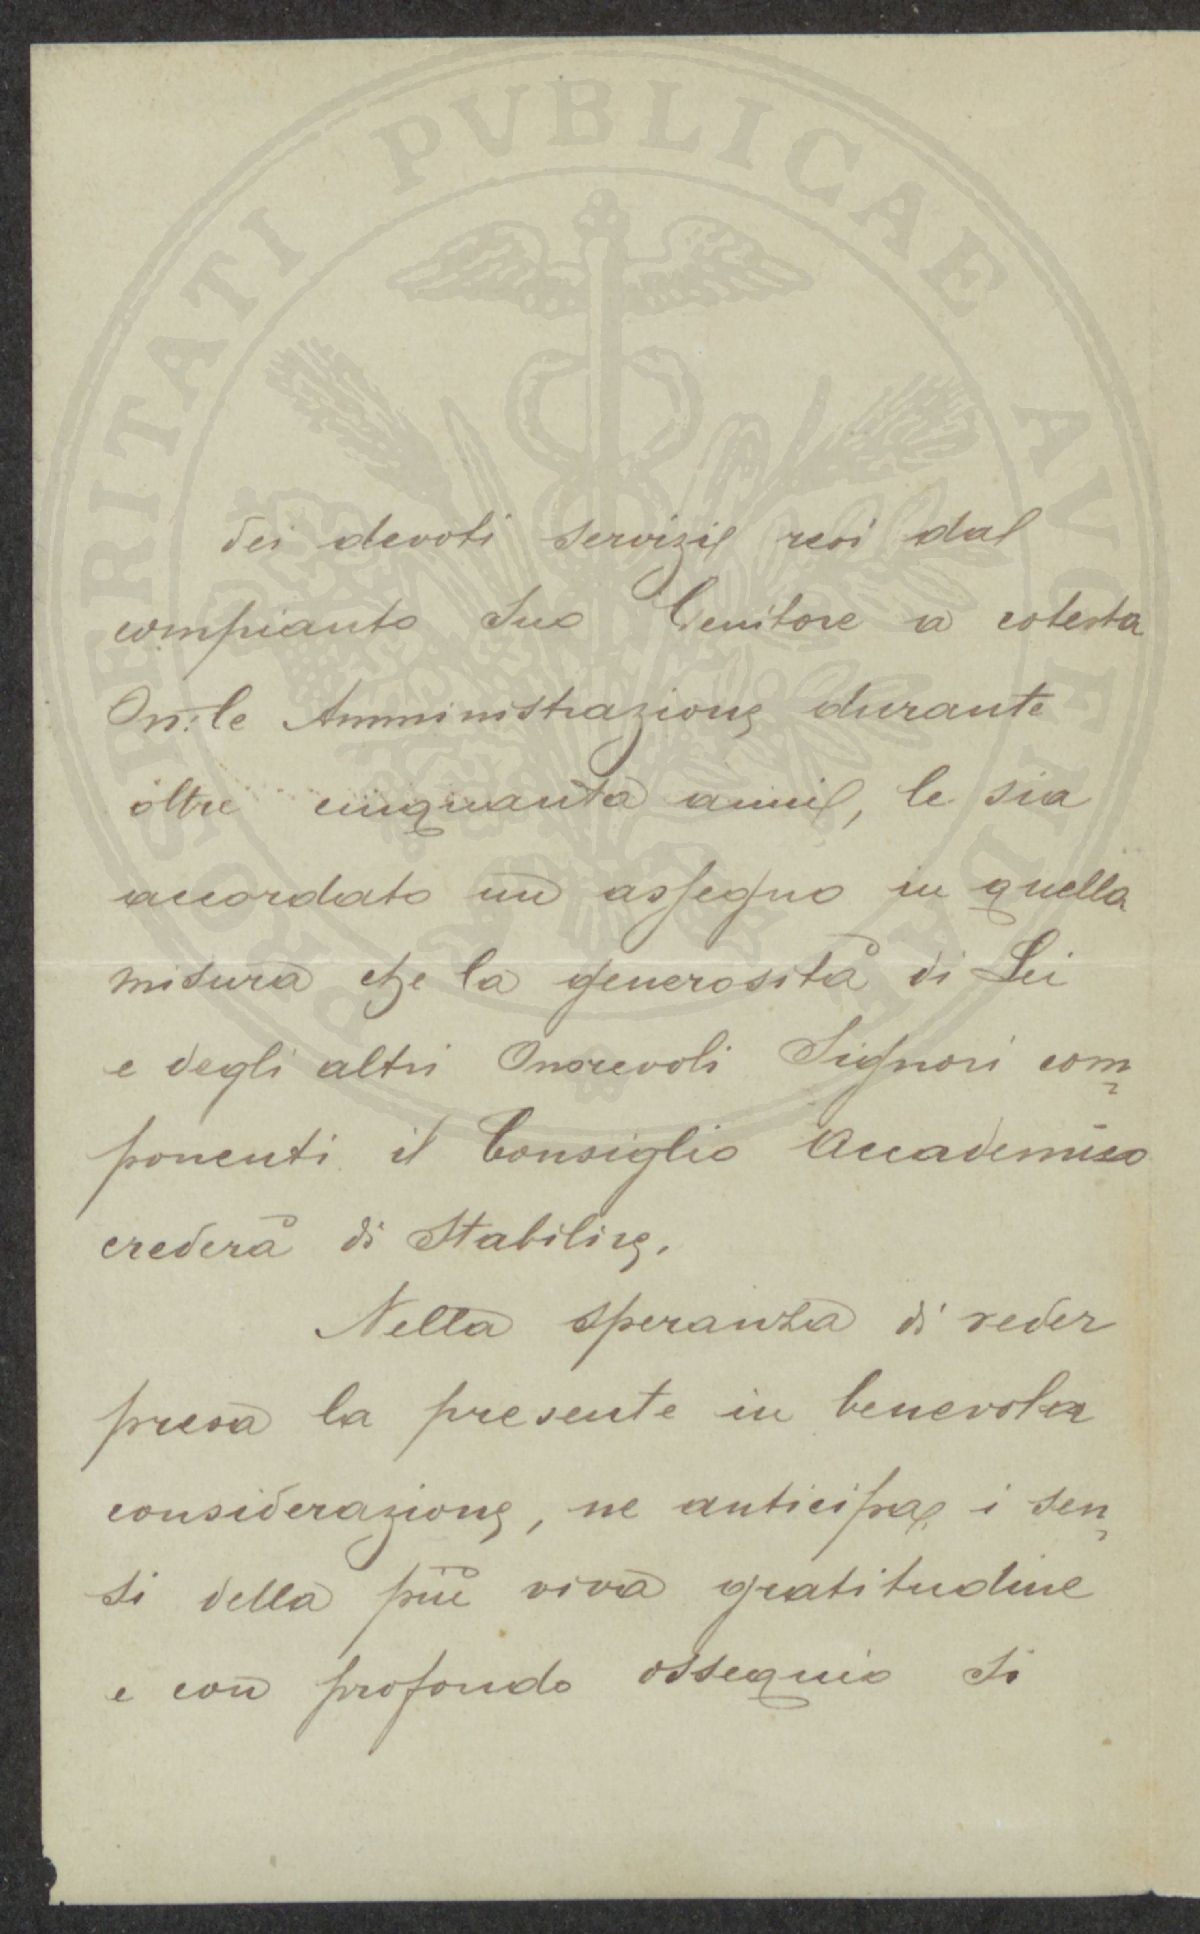 PROSPERITATI PVBLICAE AVGENDAE
dei devoti servizi resi dal
compianto Suo Genitore a cotesta
On:le Amministrazione durante
oltre cinquanta anni, le sia
accordato un assegno in quella
misura che la generosità di Lei
e degli altri Onorevoli Signori com
ponenti il Consiglio Accademico
crederà di Stabilire.
Nella speranza di veder
presa la presente in benevola
considerazione, ne anticipa i sen
si della più viva gratitudine
e con profondo ossequio si